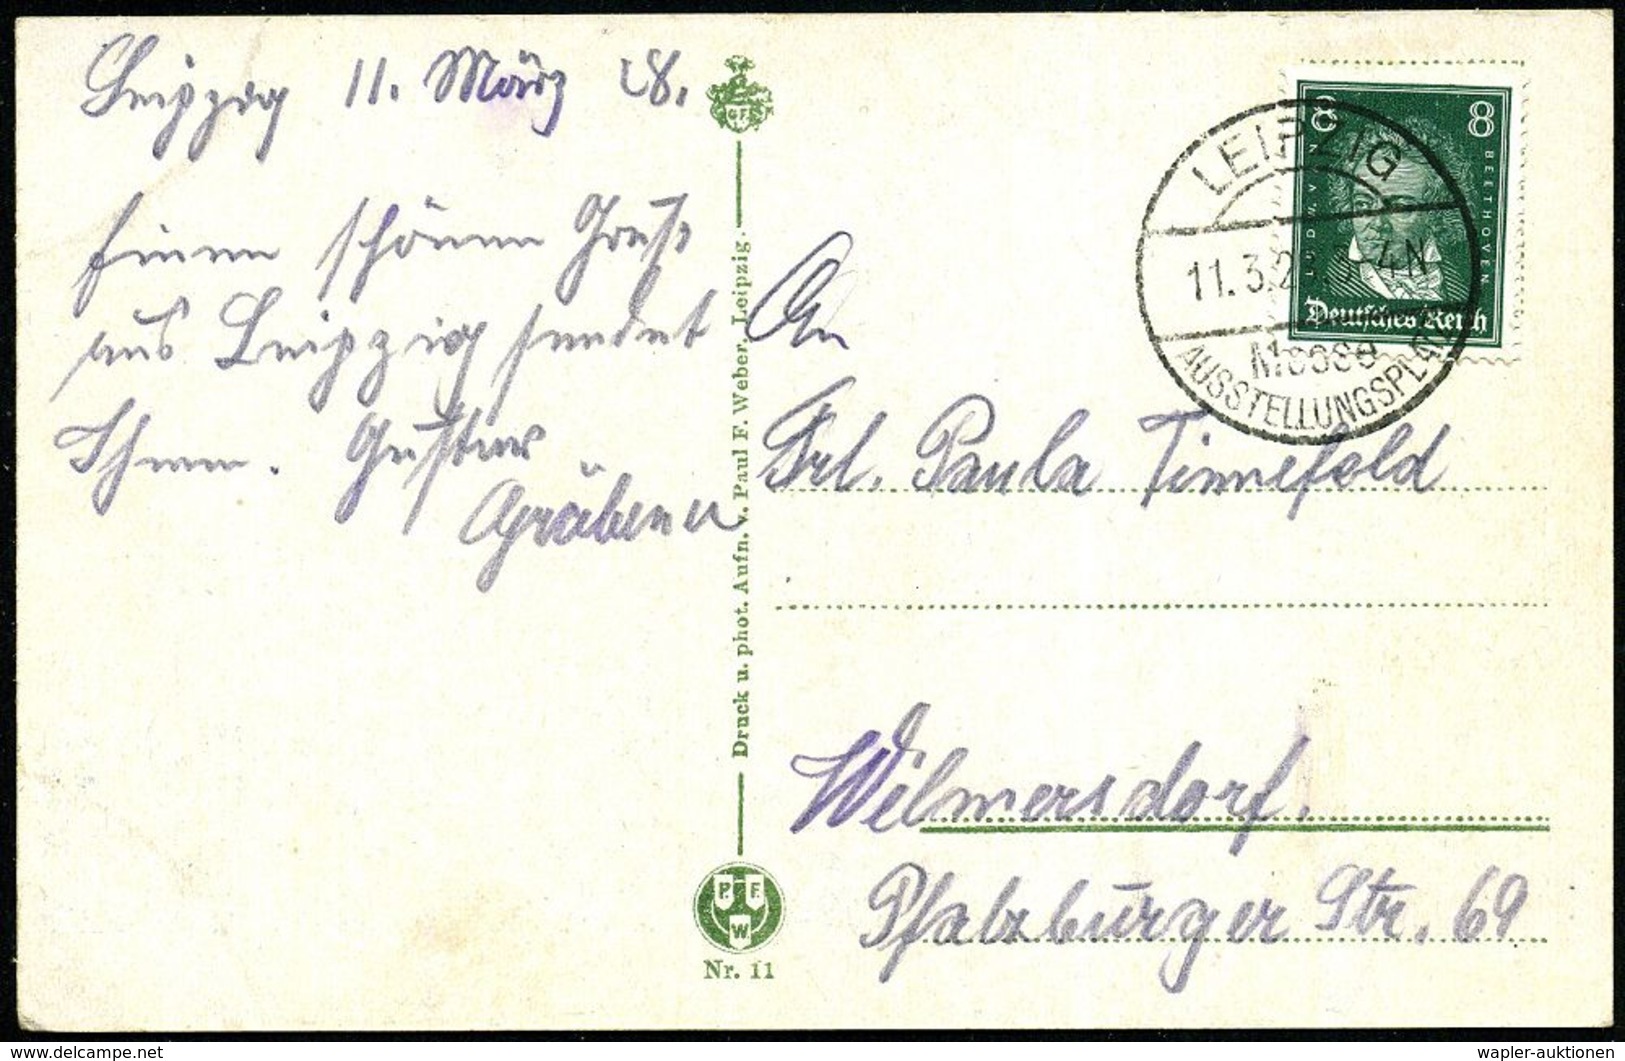 Leipzig 11. März 28.
Einen schönen Gruß
aus Leipzig sendet
Ihnen. Gustav
Gräbener
G F
Druck u. phot. Aufn. v. Paul F. Weber, Leipzig.
P. F. W
Nr. 11
LEIPZIG
11.3.2 -4N
Messe
AUSSTELLUNGSPLATZ
8 8
LUDW. V. N
BEETHOVEN
Deutsches Reich
An
Frl. Paula Tinnefeld
Wilmersdorf.
Pfalzburger Str. 69
wapler-auktionen
delcampe.net